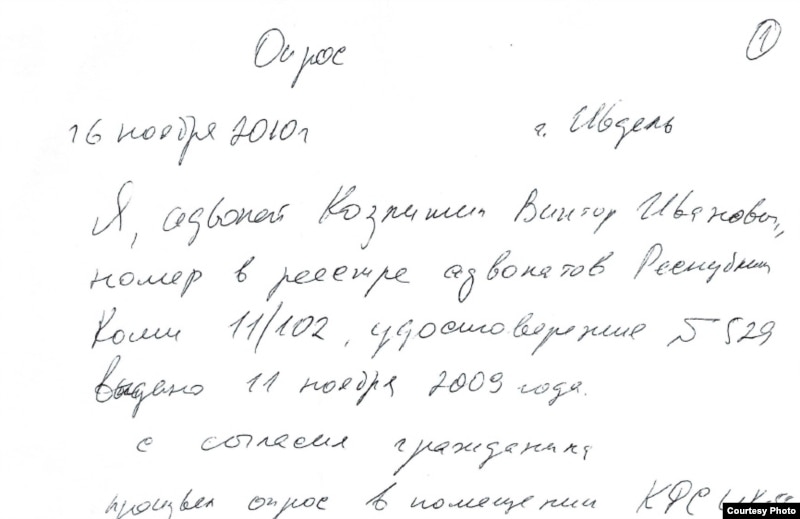 Опрос
1
16 ноября 2010г
г. Ивдель
Я, адвокат Козлитин Виктор Иванович,
номер в реестре адвокатов Республики
Коми 11/102, удостоверение № 529
выдано 11 ноября 2009 года.
с согласия гражданина
произвел опрос в помещении КФС
Courtesy Photo